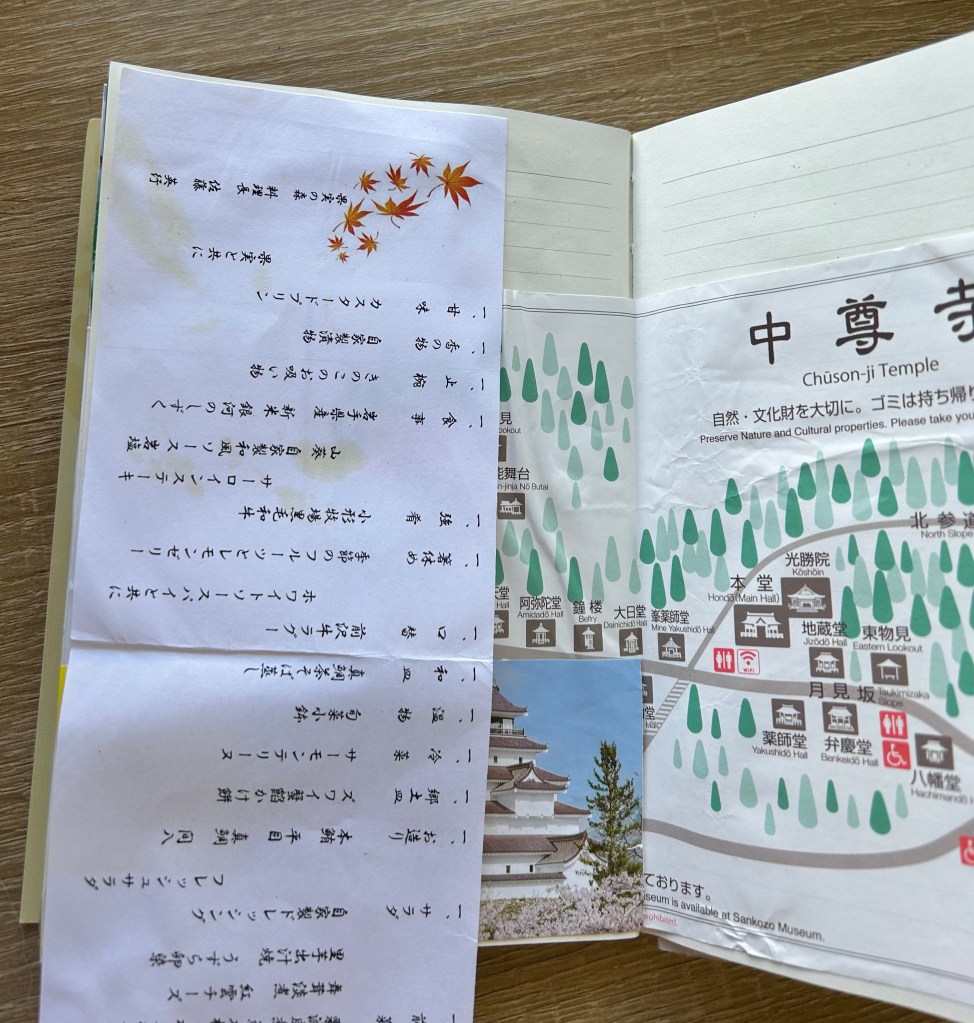 一、前菜
舞茸淡煮 紅雲チーズ
里芋出汁焼 うずら卵
一、サラダ 自家製ドレッシング
フレッシュサラダ
一、お造り 本鮪 平目 真鯛 間八
一、郷土皿 ズワイ蟹餡かけ餅
一、冷菜 サーモンテリーヌ
一、温物 旬菜小鉢
一、和皿 真鯛茶そば蒸し
一、口替 前沢牛ラグー
ホワイトソースパイと共に
一、箸休め 季節のフルーツとレモンゼリー
一、強肴 小形牧場黒毛和牛
サーロインステーキ
山葵 自家製和風ソース 岩塩
一、食事 岩手県産 新米 銀河のしずく
一、上椀 きのこのお吸い物
一、香の物 自家製漬物
一、甘味 カスタードプリン
果実と共に
果実の森 料理長 佐藤 英行
中尊寺
Chūson-ji Temple
自然・文化財を大切に。ゴミは持ち帰り
Preserve Nature and Cultural properties. Please take you
見
ookout
能舞台
n-jinja Nō Butai
北参道
North Slope
光勝院
Kōshōin
本堂
Hondō(Main Hall)
堂
Hall
阿弥陀堂
Amidadō Hall
鐘楼
Belfry
大日堂
Dainichidō Hall
峯薬師堂
Mine Yakushidō Hall
地蔵堂
Jizōdō Hall
東物見
Eastern Lookout
WiFi
月見坂
Tsukimizaka Slope
堂
薬師堂
Yakushidō Hall
弁慶堂
Benkeidō Hall
八幡堂
Hachimandō H
ております。
useum is available at Sankozo Museum.
prohibited.